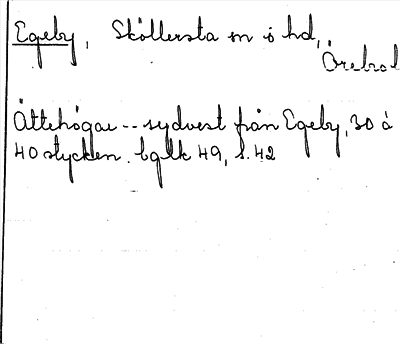 Egeby, Sköllersta sn o hd,
Örebro l
Ättehögar -- sydvest från Egeby, 30 à
40 stycken. bglk 49, s. 42